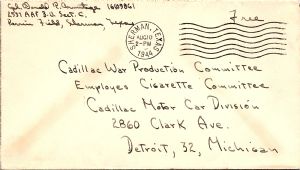 Cpl. Donald R. Armitage 16109861
2537 AAF B.U. Sect. C.
Perrin Field, Sherman, Texas
Free
SHERMAN, TEXAS
AUG 10
2-PM
1944
Cadillac War Production Committee
Employes Cigarette Committee
Cadillac Motor Car Division
2860 Clark Ave.
Detroit, 32, Michigan